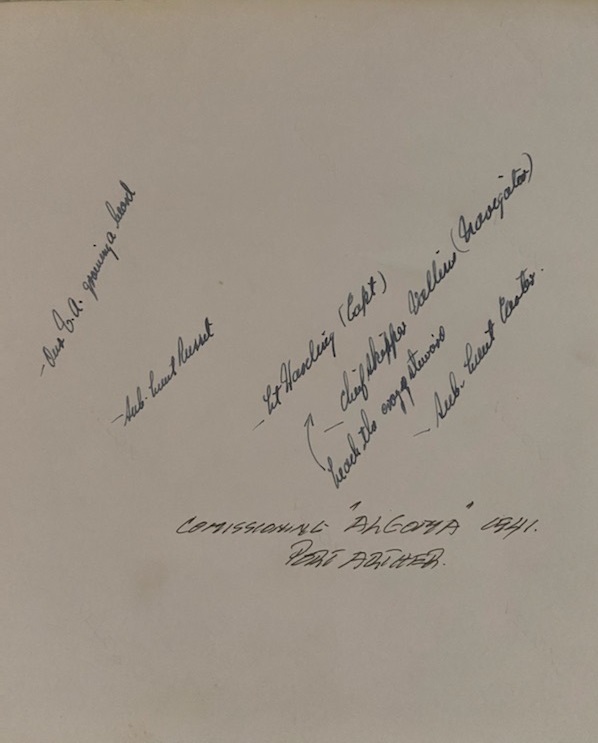 - Our E.A. growing a beard
- Sub. Lieut Russet
- Lt Harding (Capt)
- Chief Skipper Collins (Navigator)
heads the wogg stewards
- Sub. Lieut Carter.
COMISSIONING "ALGOMA" 1941.
PORT ARTHER.